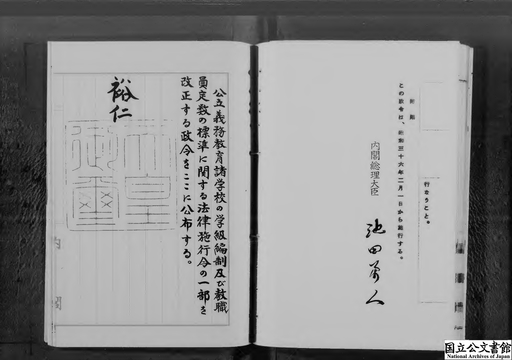 行なうこと。
附則
この政令は、昭和三十六年二月一日から施行する。
内閣総理大臣
池田勇人
公立義務教育諸学校の学級編制及び教職
員定数の標準に関する法律施行令の一部を
改正する政令をここに公布する。
裕仁
天皇
御璽
内閣
国立公文書館
National Archives of Japan